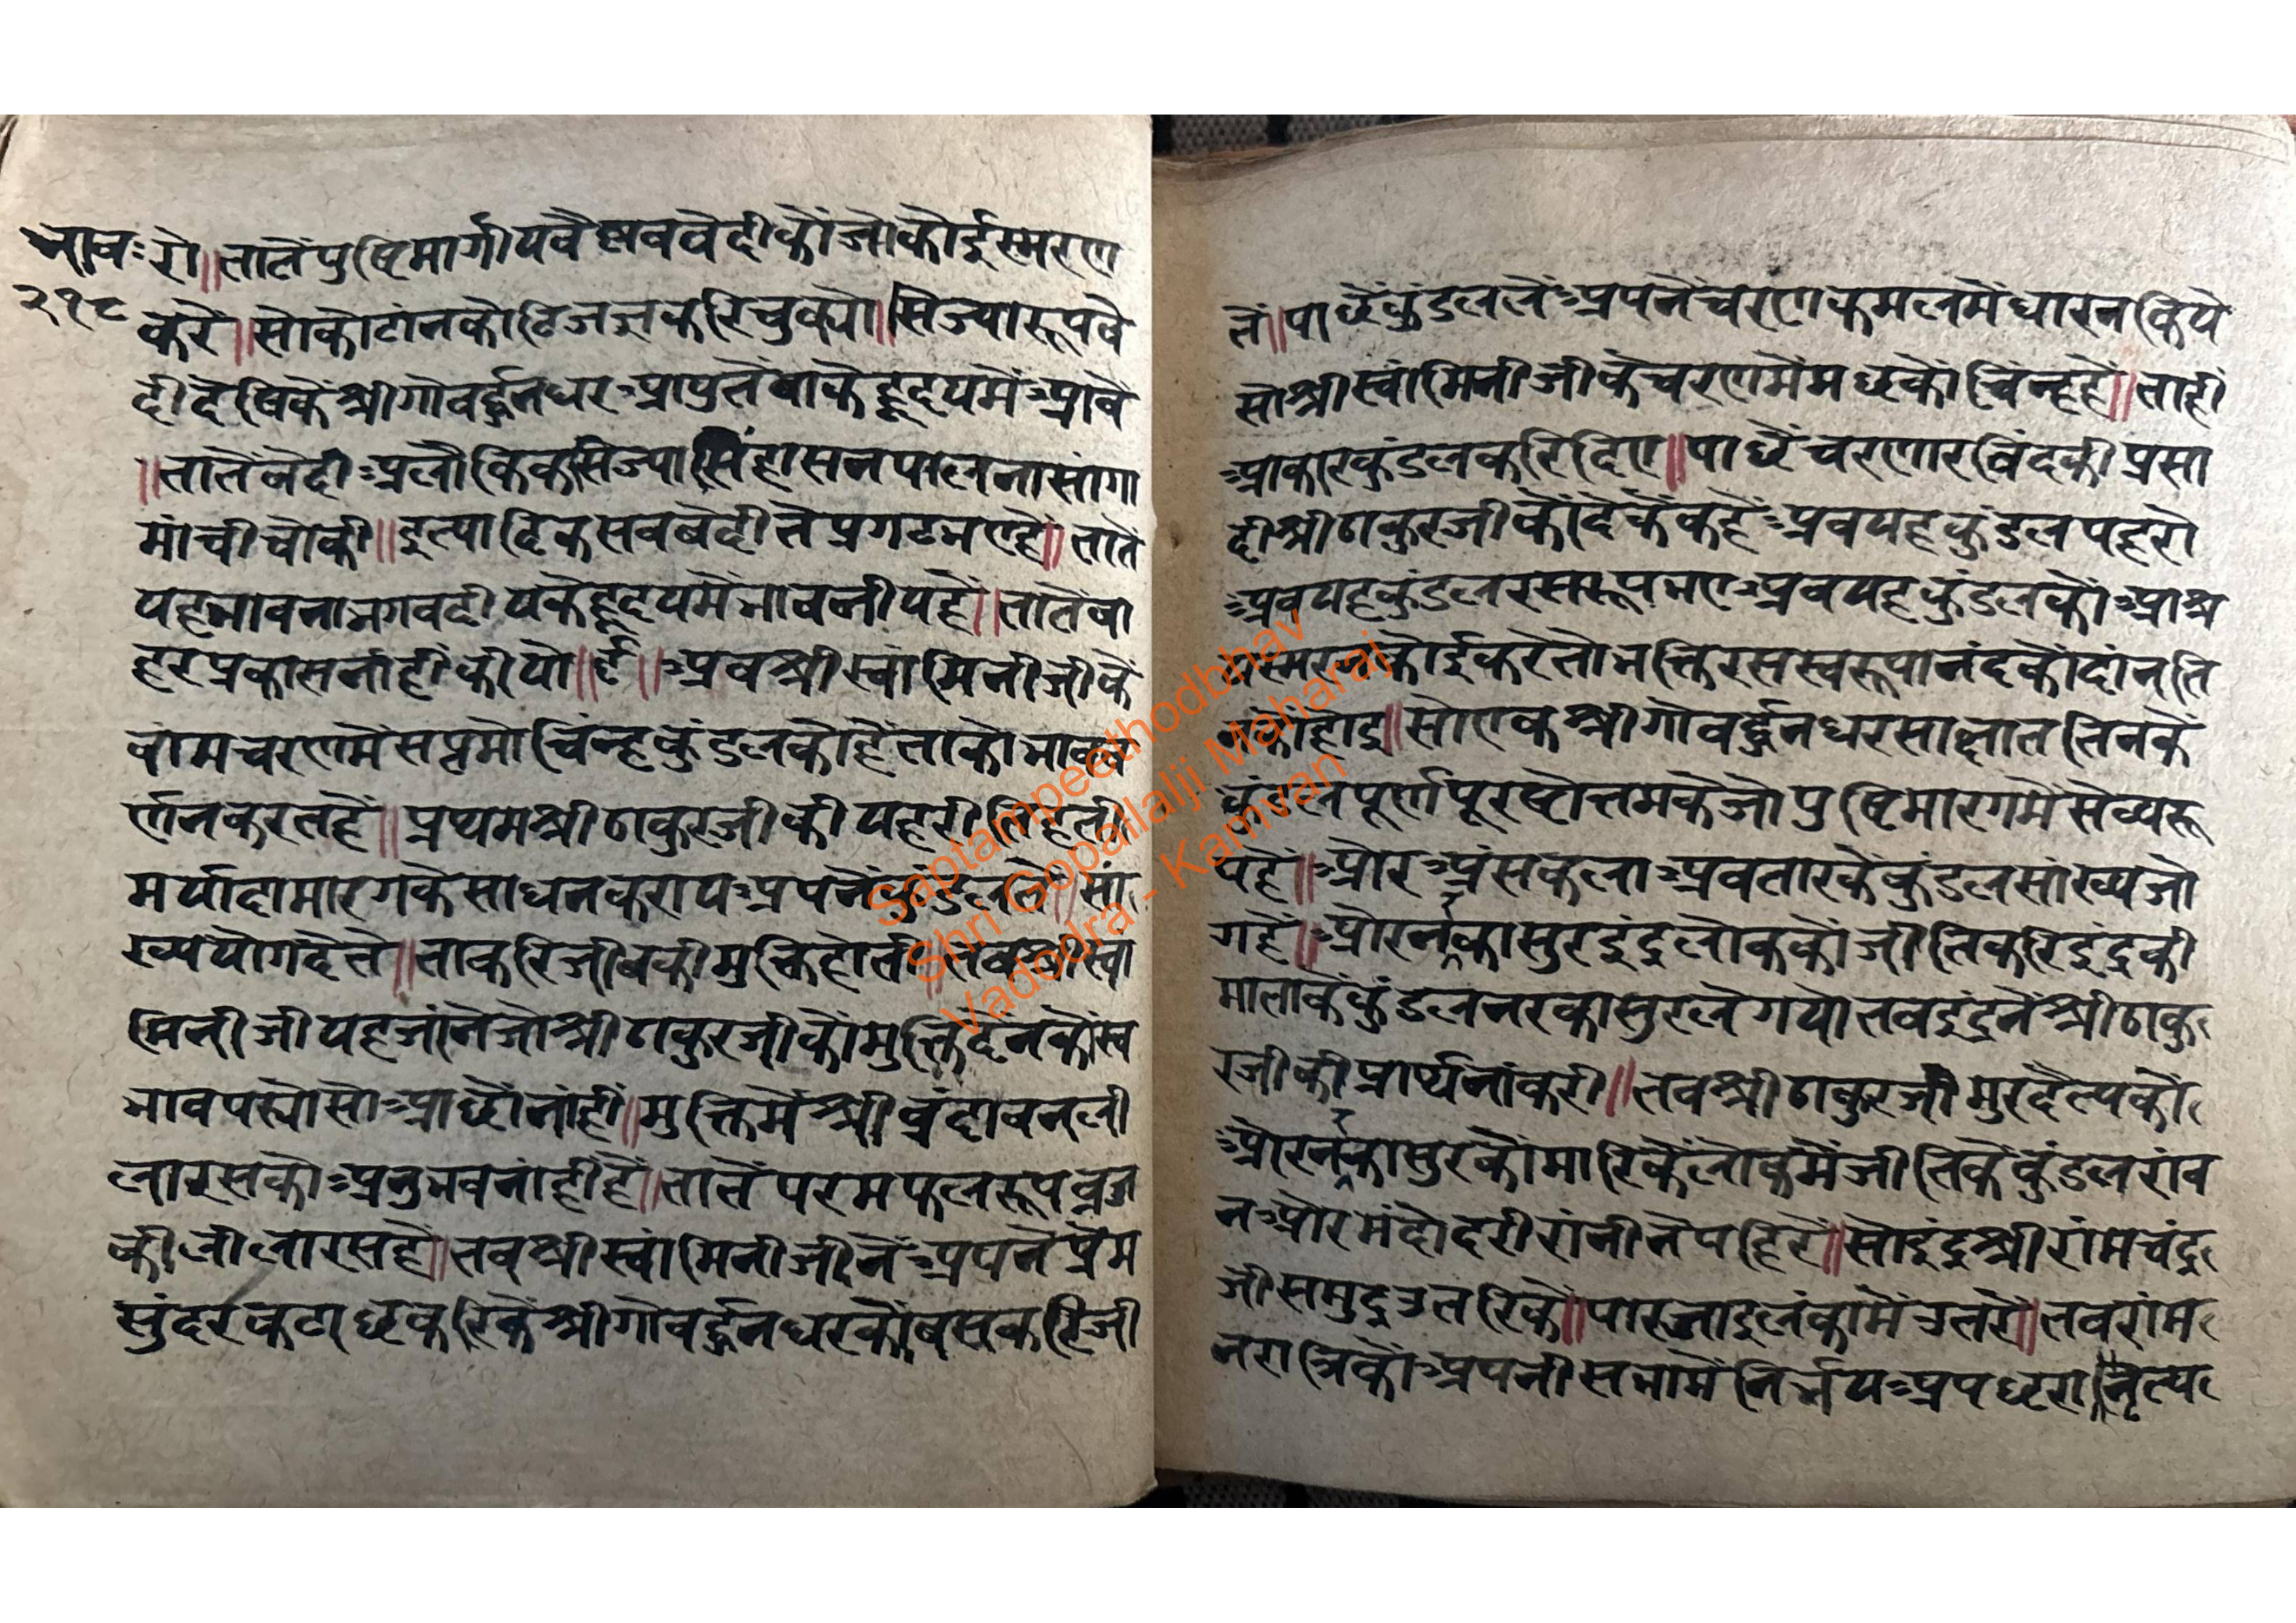 भाव॰
२१८
रो॥तातेंपुष्टिमार्गीयवैष्णववेदीकोंजोकोईस्मरण
करें॥सोकोटांनकोटिजज्ञकरिचुक्यो॥सिज्यारूपवे
दीदेषिकेंश्रीगोवर्द्धनधरआपुतेंवाकेहृदयमेंआवें
॥तातेंवेदीअलौकिकसिज्यासिंहासनपालनासांगा
मांचीचोकी॥इत्यादिकसबबेदीतेप्रगटभएहें॥तातें
यहभावनाभगवदीयकेहृदयमेंभावनीयहें॥तातेंबा
हरप्रकासनांहींकीयो॥६॥अबश्रीस्वामिनीजीकें
वांमचरणमेंसप्तमोचिंन्हकुंडलकोहेंताकोभावव
र्णनकरतहें॥प्रथमश्रीठाकुरजीकीयहरीतिहती
मर्यादामारगकेसाधनकरायअपनेंकुंडलतें॥सां
ख्ययोगदेते॥ताकरिजीवकीमुक्तिहोती॥तबश्रीस्वा
मिनीजीयहजांनेजोश्रीठाकुरजीकोंमुक्तिदेनकोस्व
भावपर्योसोआछोंनांहीं॥मुक्तिमेंश्रीवृंदावनली
लारसकोअनुभवनांहींहें॥तातेंपरमफलरूपब्रज
कीलीलारसहें॥तबश्रीस्वांमिनीजीनेंअपनेप्रेम
सुंदरकटाछकरिकेंश्रीगोवर्द्धनधरकोंबसकरिजी
तें॥पाछेंकुंडललेंअपनेंचरणकमलमेंधारनकिये
सोश्रीस्वांमिनीजीकेचरणमेंमछकोंचिंन्हहें॥ताही
आकारकुंडलकरिदिए॥पाछेंचरणारविंदकीप्रसा
दीश्रीठाकुरजीकोंदेकेंकहेंअबयहकुंडलपहरो
अबयहकुंडलरसरूपभएअबयहकुंडलकोंआश्र
यस्मरनकोईकरेतोभक्तिरसस्वरूपानंदकोंदांनति
नकोंहोइ॥सोएकश्रीगोवर्द्धनधरसाक्षाततिनके
कुंडलपूर्णपूरषोत्तमकेजोपुष्टिमारगमेंसेव्यरू
पहें॥औरअंसकलाअवतारकेंकुंडलसांख्यजो
गहें॥औरनर्कासुरइंद्रलोककोंजीतिकरिइंद्रकी
माताकेंकुंडलनरकासुरलेगयोतबइंद्रनेंश्रीठाकु
रजीकीप्रार्थनांकरी॥तबश्रीठाकुरजीमुरदैत्यकों
औरनर्कासुरकोंमारिकेंलोकमेंजीतिकेंकुंडलरांव
नऔरमंदोदरीरांनीनेपहिरें॥सोइंद्रश्रीरांमचंद्र
जीसमुद्रउतरिकें॥पारजाइलंकामेंउतरें॥तबरांम
नरात्रिकोंअपनीसभामेंनिर्भयअपछरानृत्य